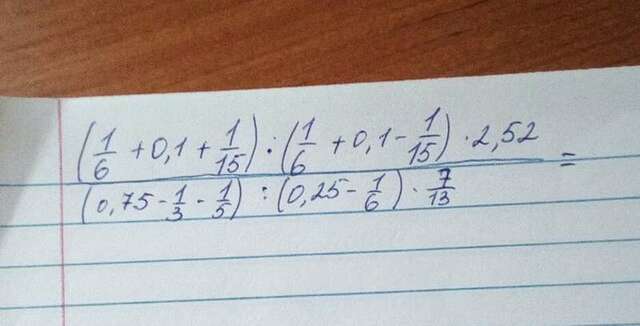 (1/6 + 0,1 + 1/15) : (1/6 + 0,1 - 1/15) · 2,52
(0,75 - 1/3 - 1/5) : (0,25 - 1/6) · 7/13 =